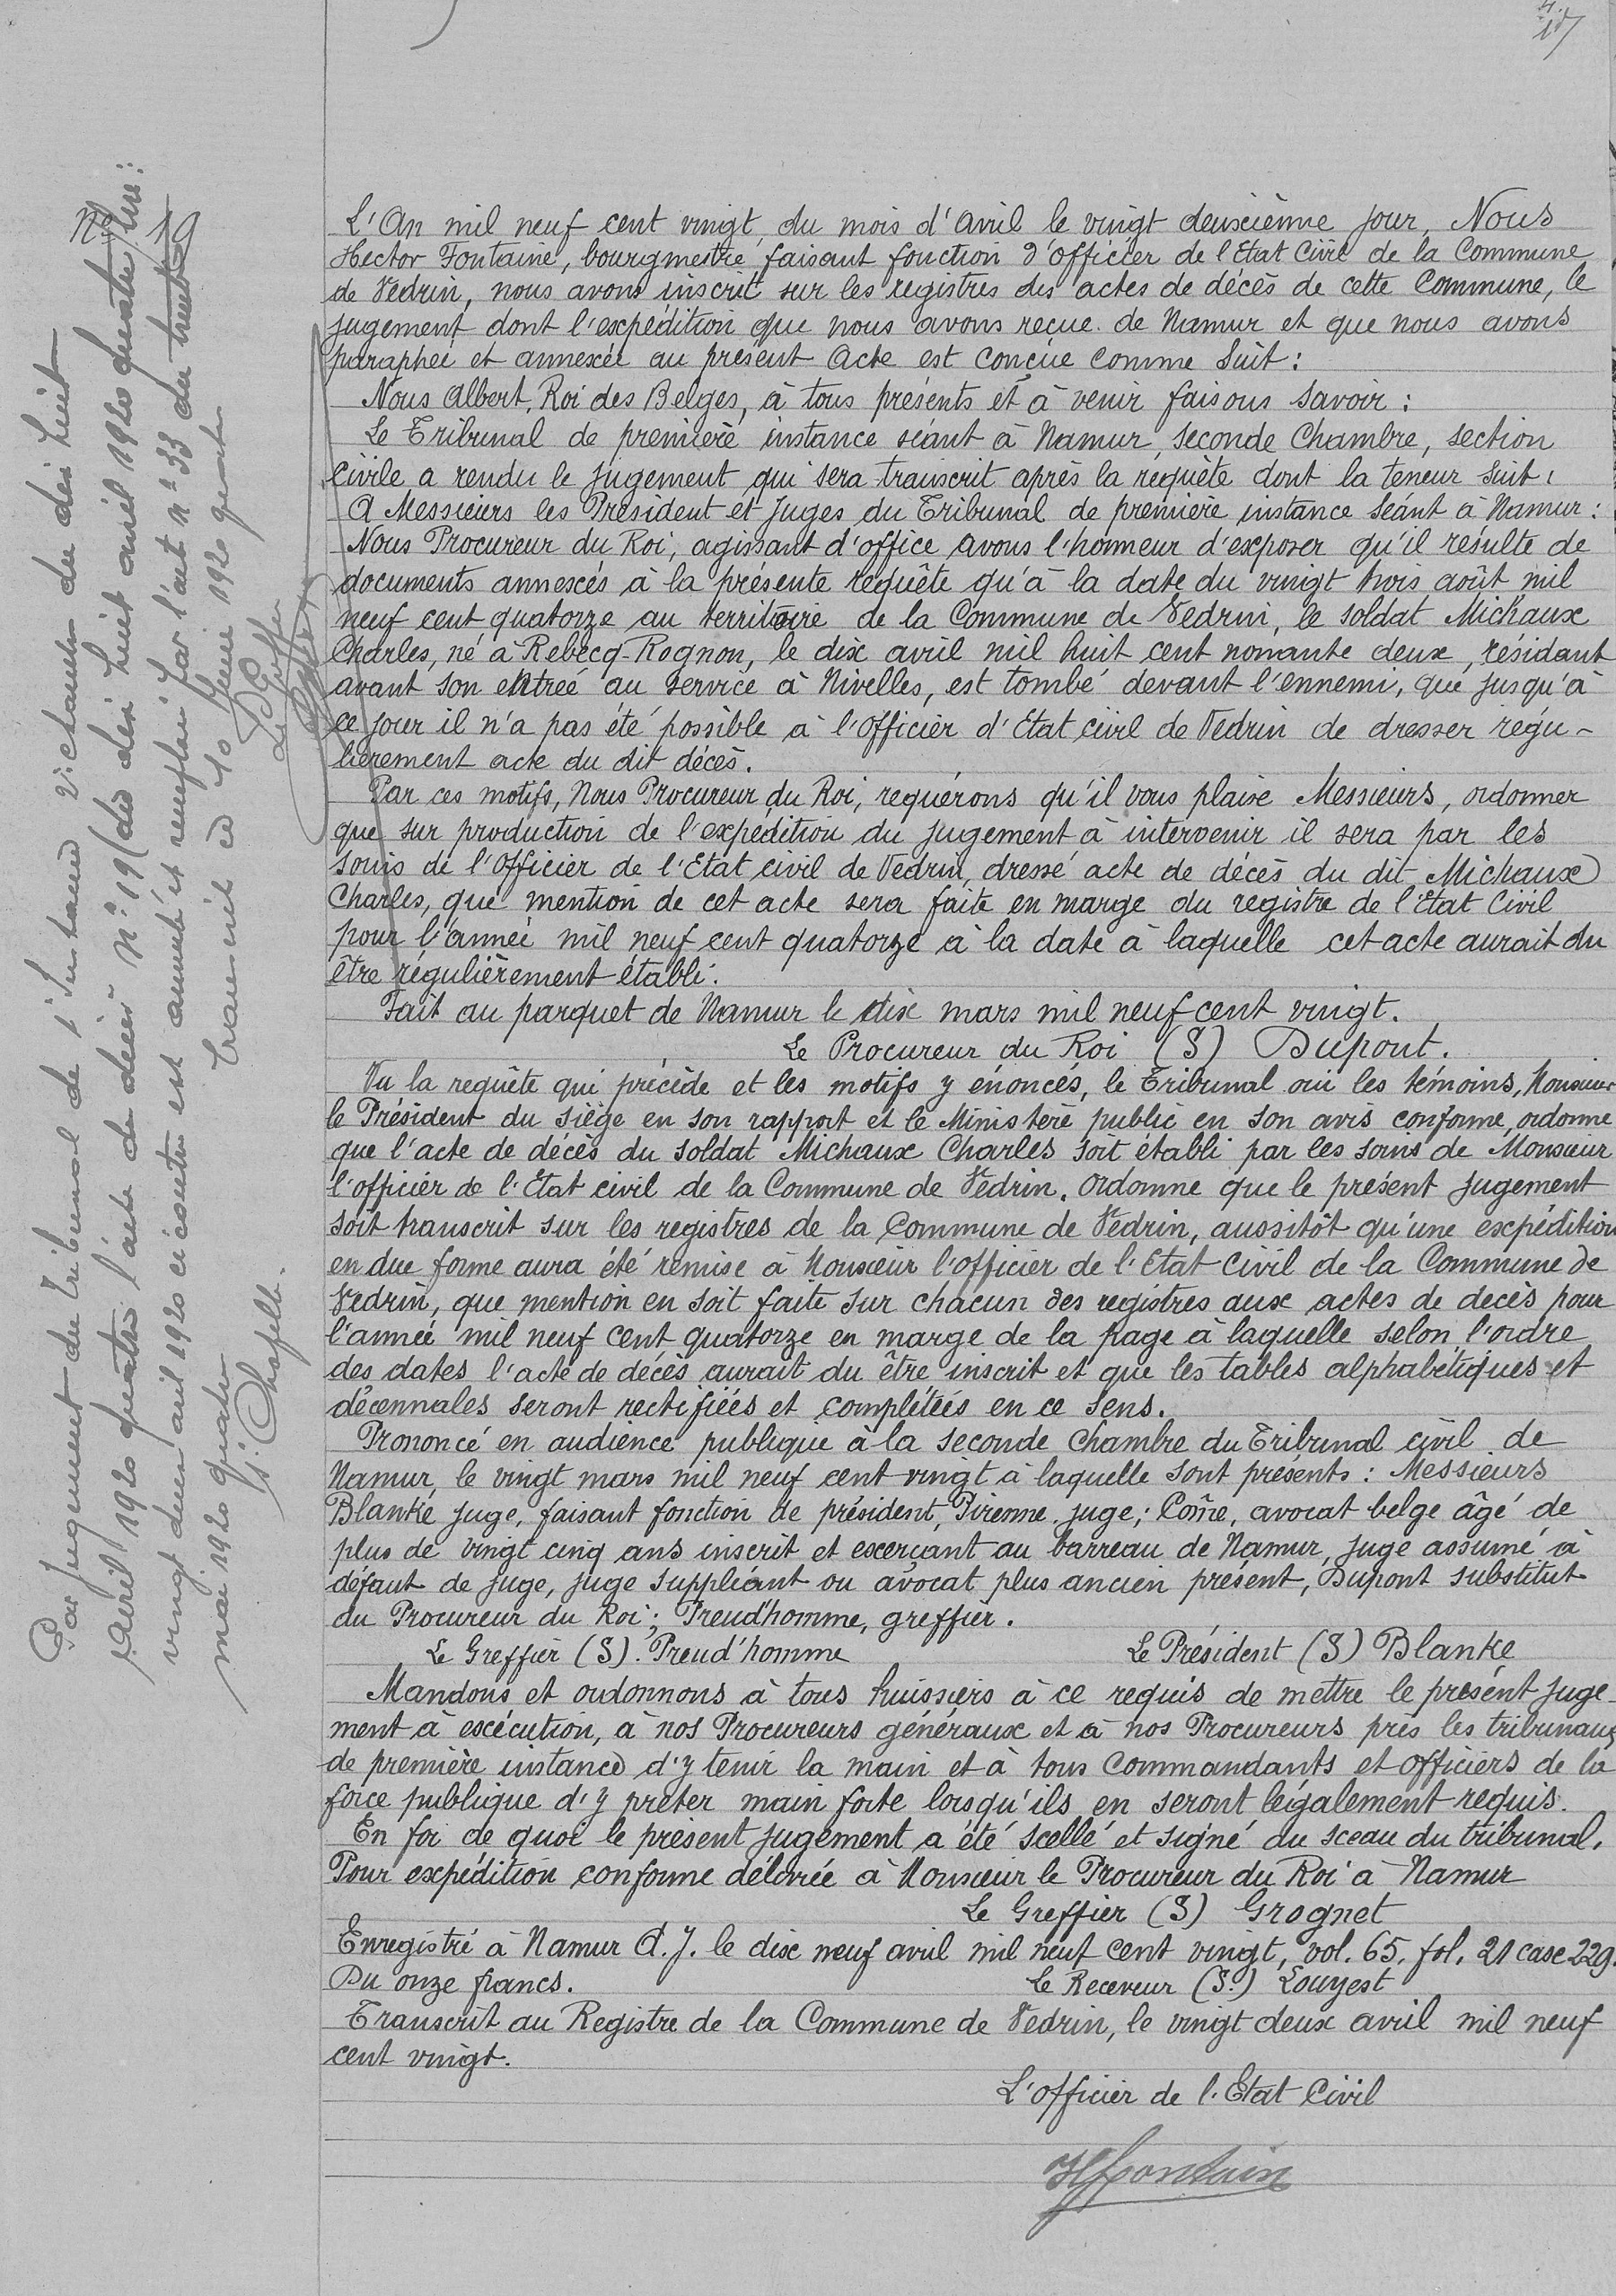 17
N° 19
L'An mil neuf cent vingt, du mois d'avril le vingt deuxième jour, Nous
Hector Fontaine, bourgmestre faisant fonction d'Officier de l'Etat Civil de la Commune
de Vedrin, nous avons inscrit sur les registres des actes de décès de cette Commune, le
jugement dont l'expédition que nous avons reçue de Namur et que nous avons
paraphée et annexée au présent Acte est conçue comme suit :
Nous Albert, Roi des Belges, à tous présents et à venir faisons savoir :
Le Tribunal de première instance séant à Namur, seconde Chambre, section
civile a rendu le jugement qui sera transcrit après la requète dont la teneur suit :
A Messieurs les Président et Juges du Tribunal de première instance séant à Namur :
Nous Procureur du Roi, agissant d'office avons l'honneur d'exposer qu'il résulte de
documents annexés à la présente requête qu'à la date du vingt trois août mil
neuf cent quatorze au territoire de la Commune de Vedrin, le soldat Michaux
Charles, né à Rebecq-Rognon, le dix avril mil huit cent nonante deux, résidant
avant son entrée au service à Nivelles, est tombé devant l'ennemi, que jusqu'à
ce jour il n'a pas été possible à l'Officier d'Etat civil de Vedrin de dresser régu-
lièrement acte du dit décès.
Par ces motifs, Nous Procureur du Roi, requérons qu'il vous plaise Messieurs, ordonner
que sur production de l'expédition du jugement à intervenir il sera par les
soins de l'Officier de l'Etat civil de Vedrin, dressé acte de décès du dit Michaux
Charles, que mention de cet acte sera faite en marge du registre de l'Etat Civil
pour l'année mil neuf cent quatorze à la date à laquelle cet acte aurait du
être régulièrement établi.
Fait au parquet de Namur le dix mars mil neuf cent vingt.
Le Procureur du Roi (S) Dupont.
Vu la requête qui précède et les motifs y énoncés, le Tribunal oui les témoins, Monsieur
le Président du siège en son rapport et le Ministère public en son avis conforme, ordonne
que l'acte de décès du soldat Michaux Charles soit établi par les soins de Monsieur
l'officier de l'Etat civil de la Commune de Vedrin. Ordonne que le présent jugement
soit transcrit sur les registres de la Commune de Vedrin, aussitôt qu'une expédition
en due forme aura été remise à Monsieur l'officier de l'Etat Civil de la Commune de
Vedrin, que mention en soit faite sur chacun des registres aux actes de décès pour
l'année mil neuf cent quatorze en marge de la page à laquelle selon l'ordre
des dates l'acte de décès aurait du être inscrit et que les tables alphabétiques et
décennales seront rectifiées et complétées en ce sens.
Prononcé en audience publique à la seconde Chambre du Tribunal civil de
Namur, le vingt mars mil neuf cent vingt à laquelle sont présents : Messieurs
Blanke juge, faisant fonction de président, Pirenne juge ; Côme, avocat belge âgé de
plus de vingt cinq ans inscrit et exerçant au barreau de Namur, juge assumé à
défaut de juge, juge suppléant ou avocat plus ancien présent, Dupont substitut
du Procureur du Roi ; Preud'homme, greffier.
Le Greffier (S). Preud'homme Le Président (S) Blanke
Mandons et ordonnons à tous huissiers à ce requis de mettre le présent juge-
ment à exécution, à nos Procureurs généraux et à nos Procureurs près les tribunaux
de première instance d'y tenir la main et à tous Commandants et Officiers de la
force publique d'y prêter main forte lorsqu'ils en seront légalement requis.
En foi de quoi le présent jugement a été scellé et signé du sceau du tribunal.
Pour expédition conforme délivrée à Monsieur le Procureur du Roi à Namur
Le Greffier (S) Grognet
Enregistré à Namur A. J. le dix neuf avril mil neuf cent vingt, vol. 65, fol. 21 case 229.
Du onze francs. Le Receveur (S.) Louyest
Transcrit au Registre de la Commune de Vedrin, le vingt deux avril mil neuf
cent vingt.
L'officier de l'Etat Civil
HFontain
Par jugement du Tribunal de 1° Instance du dix huit
avril 1920 quatre l'acte de décès N° 19 (du dix huit avril 1920 quatre
vingt deux avril 1920 ci contre est annulé et remplacé par l'acte n° 33 du trente
mai 1920 quatre Transcrit ce 10 1920 quatre